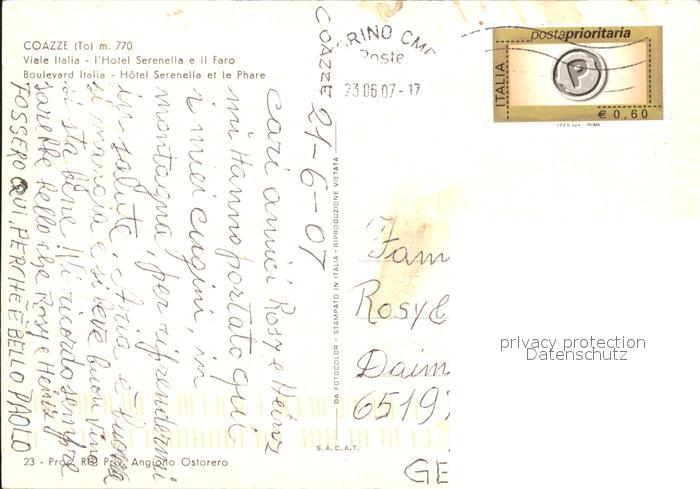 COAZZE (To) m. 770
Viale Italia - l'Hotel Serenella e il Faro
Boulevard Italia - Hôtel Serenella et le Phare
COAZZE 21-6-07
cari amici Rosy e Heinz
mi Hanno portato qui
i miei cugini, in
montagna, per riprendermi
in salute. Aria è buona
si mangia e si beve buon vino
si sta bene! Vi ricordo sempre
sarebbe bello che Rosy e Heinz
FOSSERO QUI, PERCHÈ È BELLO PAOLO
23 - Prop. Ris. Angiono Ostorero
DA FOTOCOLOR - STAMPATO IN ITALIA - RIPRODUZIONE VIETATA
S. A. C. A. T.
RINO CMP
Poste
23.06.07 - 17
postaprioritaria
ITALIA
P
€ 0,60
I.P.Z.S. S.p.A. - ROMA
Fam
Rosy &
Daim
6519
GE
privacy protection
Datenschutz